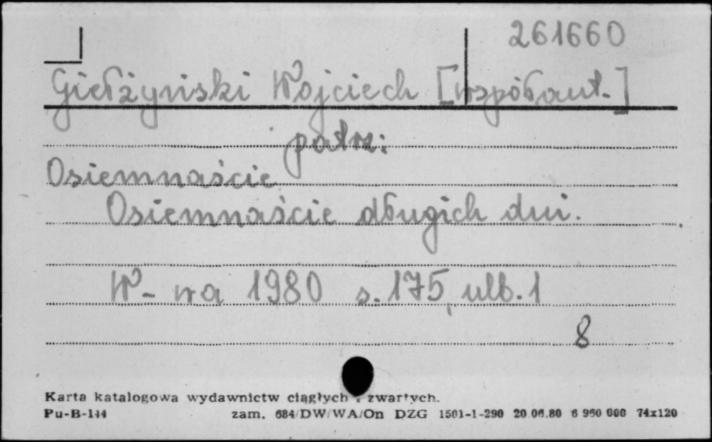 261660
Giełżyński Wojciech [współaut.]
patrz:
Osiemnaście
Osiemnaście długich dni.
W-wa 1980 s. 175, ulb. 1
8
Karta katalogowa wydawnictw ciągłych i zwartych.
Pu-B-144 zam. 684/DW/WA/On DZG 1501-1-290 20.06.80 6 950 000 74x120